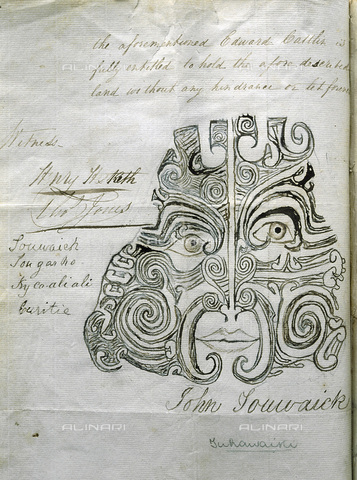 the aforementioned Edward Catlin is
fully entitled to hold the afore described
land without any hindrance or let from
Witness
Henry Hesketh
Thos Jones
Touwaick
Tongaiho
Kycoaliali
Curitie
John Touwaick
Tuhawaiki
ALINARI
ALINARI
ALINARI
ALINARI